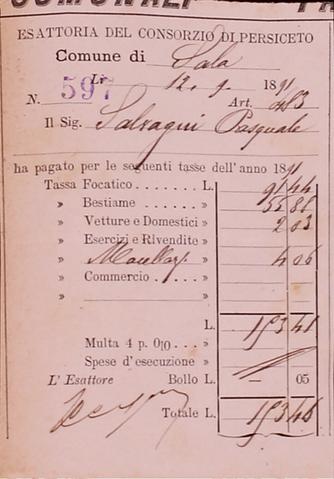 COMUNALI
ESATTORIA DEL CONSORZIO DI PERSICETO
Comune di Sala
Lì 12. 9. 1891
N. 597 Art.
Il Sig. Salvagni Pasquale
ha pagato per le seguenti tasse dell'anno 1891
Tassa Focatico . . . . . . . L. 91 44
» Bestiame . . . . . . » 55 88
» Vetture e Domestici » 2 03
» Esercizi e Rivendite »
» » 4 06
» Commercio . . . . . »
» »
L. 153 41
Multa 4 p. 0|0 . . . »
Spese d'esecuzione »
L' Esattore Bollo L. — 05
Totale L. 153 46